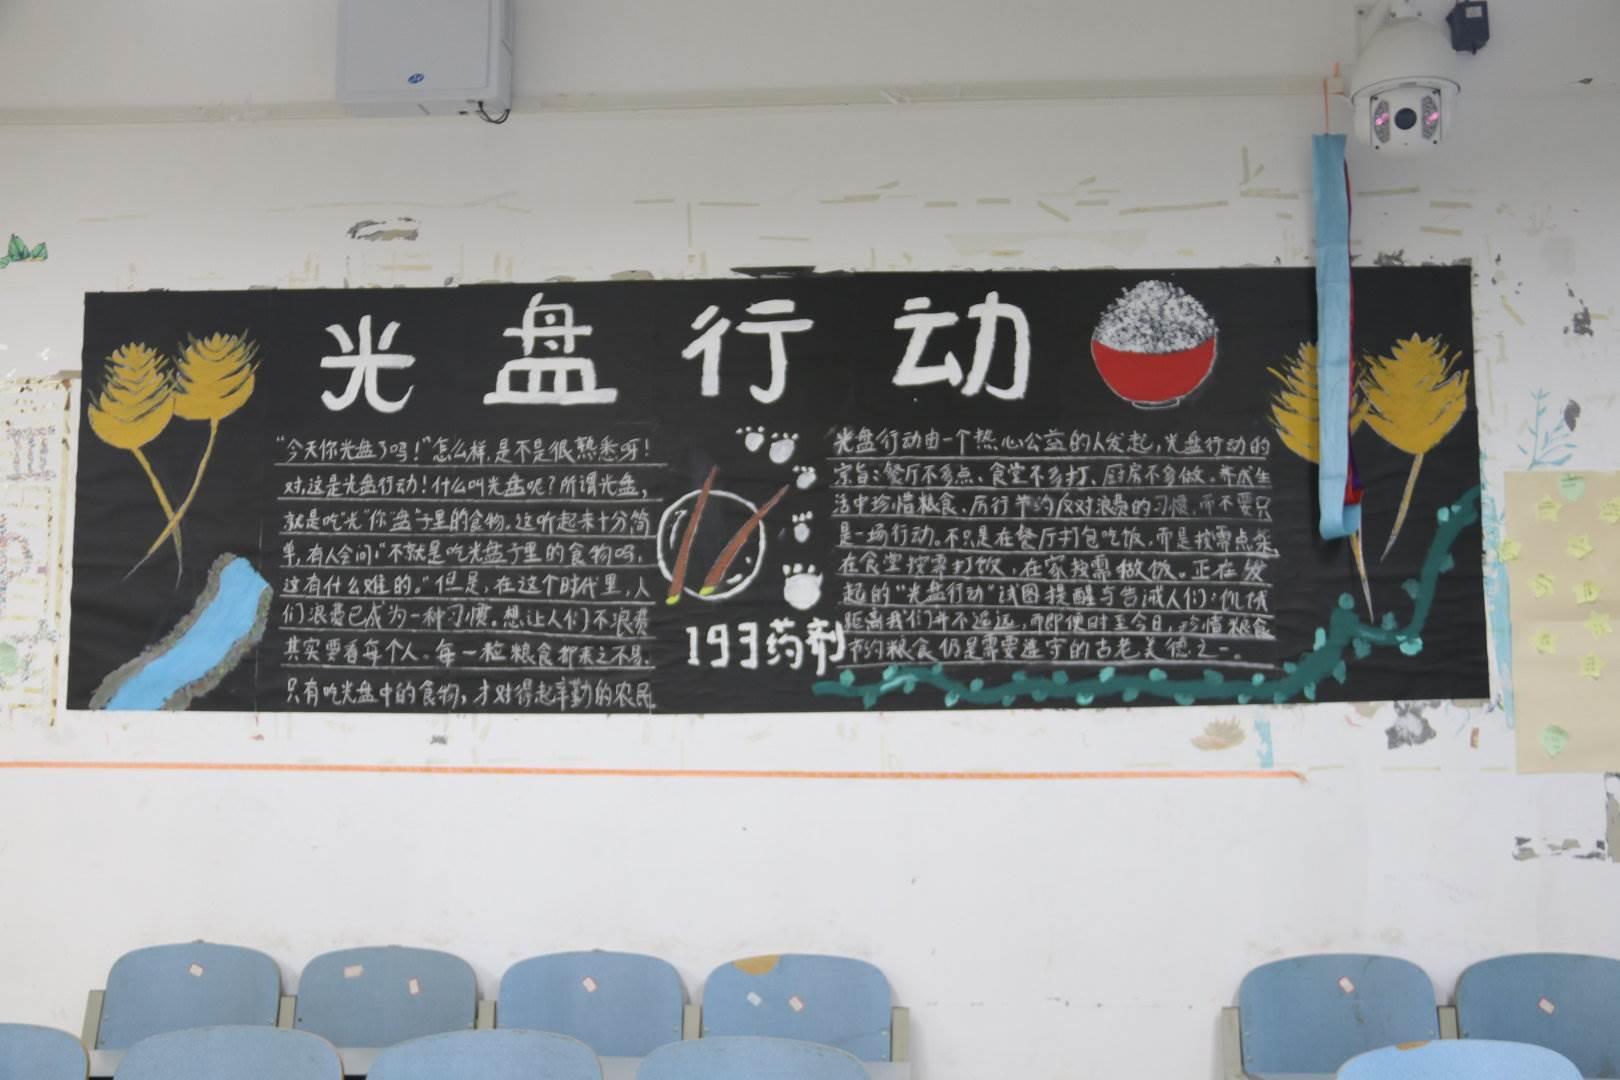 光盘行动
“今天你光盘了吗！”怎么样,是不是很熟悉呀！
对,这是光盘行动！什么叫光盘呢？所谓光盘，
就是吃“光”你“盘”子里的食物。这听起来十分简
单,有人会问:“不就是吃光盘子里的食物吗，
这有什么难的。”但是,在这个时代里,人
们浪费已成为一种习惯。想让人们不浪费
其实要看每个人。每一粒粮食都来之不易,
只有吃光盘中的食物，才对得起辛勤的农民
193药剂
光盘行动由一个热心公益的人发起,光盘行动的
宗旨:餐厅不多点、食堂不多打、厨房不多做。养成生
活中珍惜粮食、厉行节约反对浪费的习惯,而不要只
是一场行动。不只是在餐厅打包吃饭,而是按需点菜
在食堂按需打饭,在家按需做饭。正在发
起的“光盘行动”试图提醒与告诫人们:饥饿
距离我们并不遥远,而即便时至今日,珍惜粮食
节约粮食仍是需要遵守的古老美德之一。